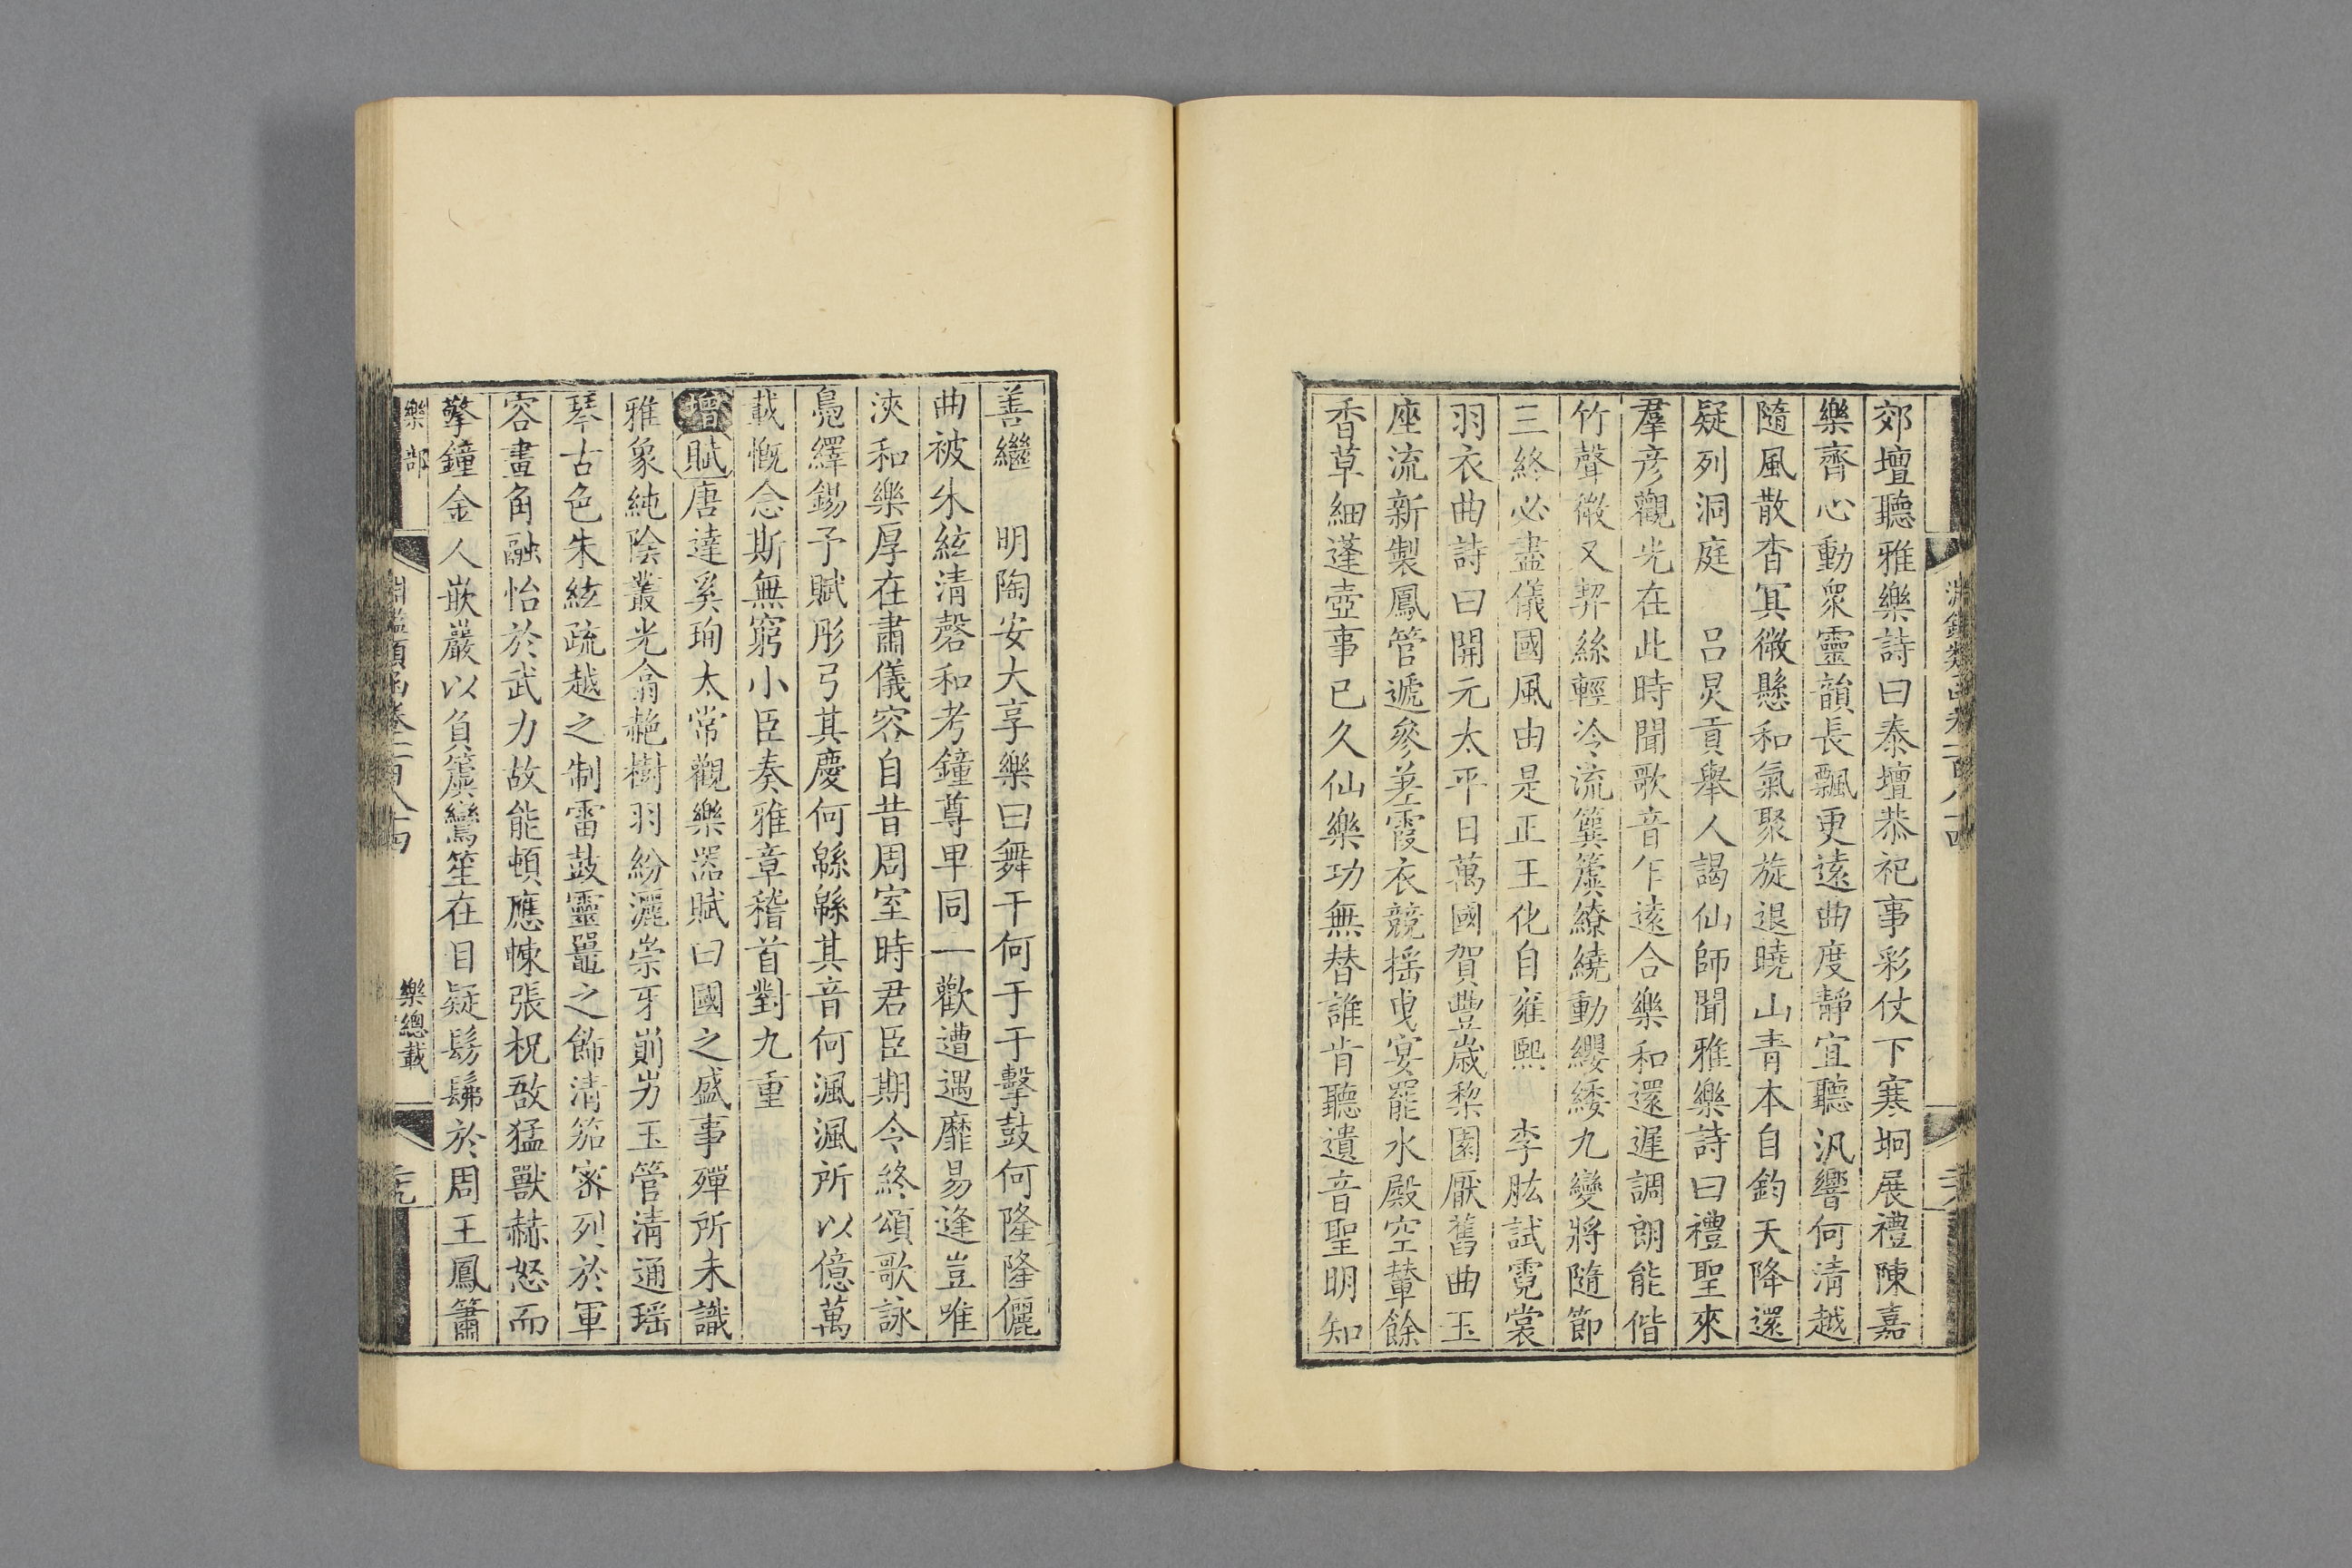 郊壇聽雅樂詩曰泰壇恭祀事彩仗下寒坰展禮陳嘉
樂齊心動衆靈韻長飄更遠曲度靜宜聽汎響何清越
隨風散杳冥微懸和氣聚旋退曉山青本自鈞天降還
疑列洞庭　呂炅貢舉人謁仙師聞雅樂詩曰禮聖來
羣彥觀光在此時聞歌音乍遠合樂和還遲調朗能偕
竹聲微又契絲輕泠流簨簴繚繞動纓緌九變將隨節
三終必盡儀國風由是正王化自雍熙　李肱試霓裳
羽衣曲詩曰開元太平日萬國賀豐歲棃園厭舊曲玉
座流新製鳳管遞參差霞衣競搖曳宴罷水殿空輦餘
香草細蓬壺事已久仙樂功無替誰肯聽遺音聖明知
善繼　明陶安大享樂曰舞干何于于擊鼓何隆隆儷
曲被朱絃清磬和考鐘尊甲同一歡遭遇靡易逢豈唯
浹和樂厚在肅儀容自昔周室時君臣期令終頌歌詠
鳧繹錫予賦彤弓其慶何緜緜其音何渢渢所以億萬
載慨念斯無窮小臣奏雅章稽首對九重
增賦唐達奚珣太常觀樂器賦曰國之盛事殫所未識
雅象純陰叢光翕赩樹羽紛灑崇牙崱屴玉管清通瑶
琴古色朱絃疏越之制雷鼓靈鼉之飾清笳寥列於軍
容畫角融怡於武力故能頓應悚張柷敔猛獸赫怒而
擎鐘金人嵌巖以負簴鸞笙在目疑髣髴於周王鳳簫
樂部
淵鑑類函卷一百八十四
樂總載